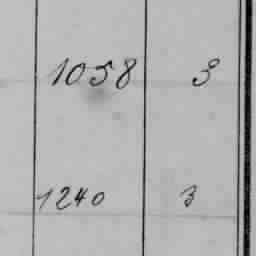 1058 3
1240 3